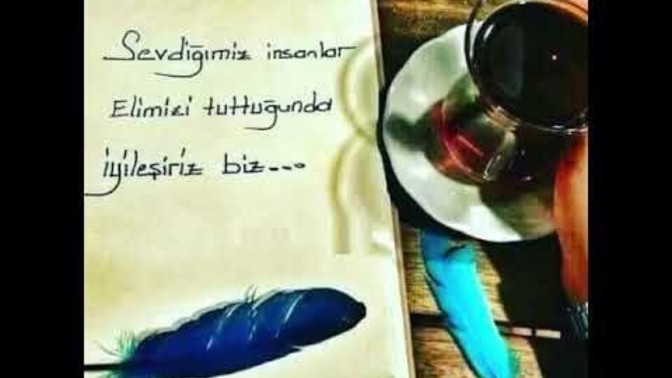 Sevdiğimiz insanlar
Elimizi tuttuğunda
iyileşiriz biz....